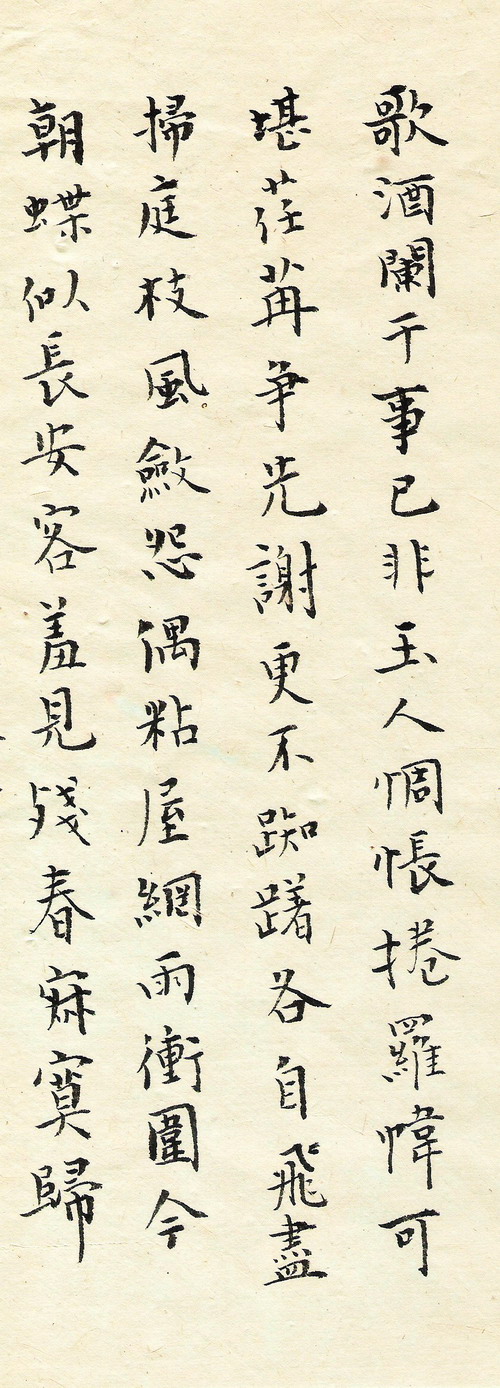 歌酒闌干事已非玉人惆悵捲羅幃可
堪荏苒争先謝更不踟躇各自飛盡
掃庭枝風斂怨偶粘屋網雨衝圍今
朝蝶似長安客羞見殘春寂寞歸